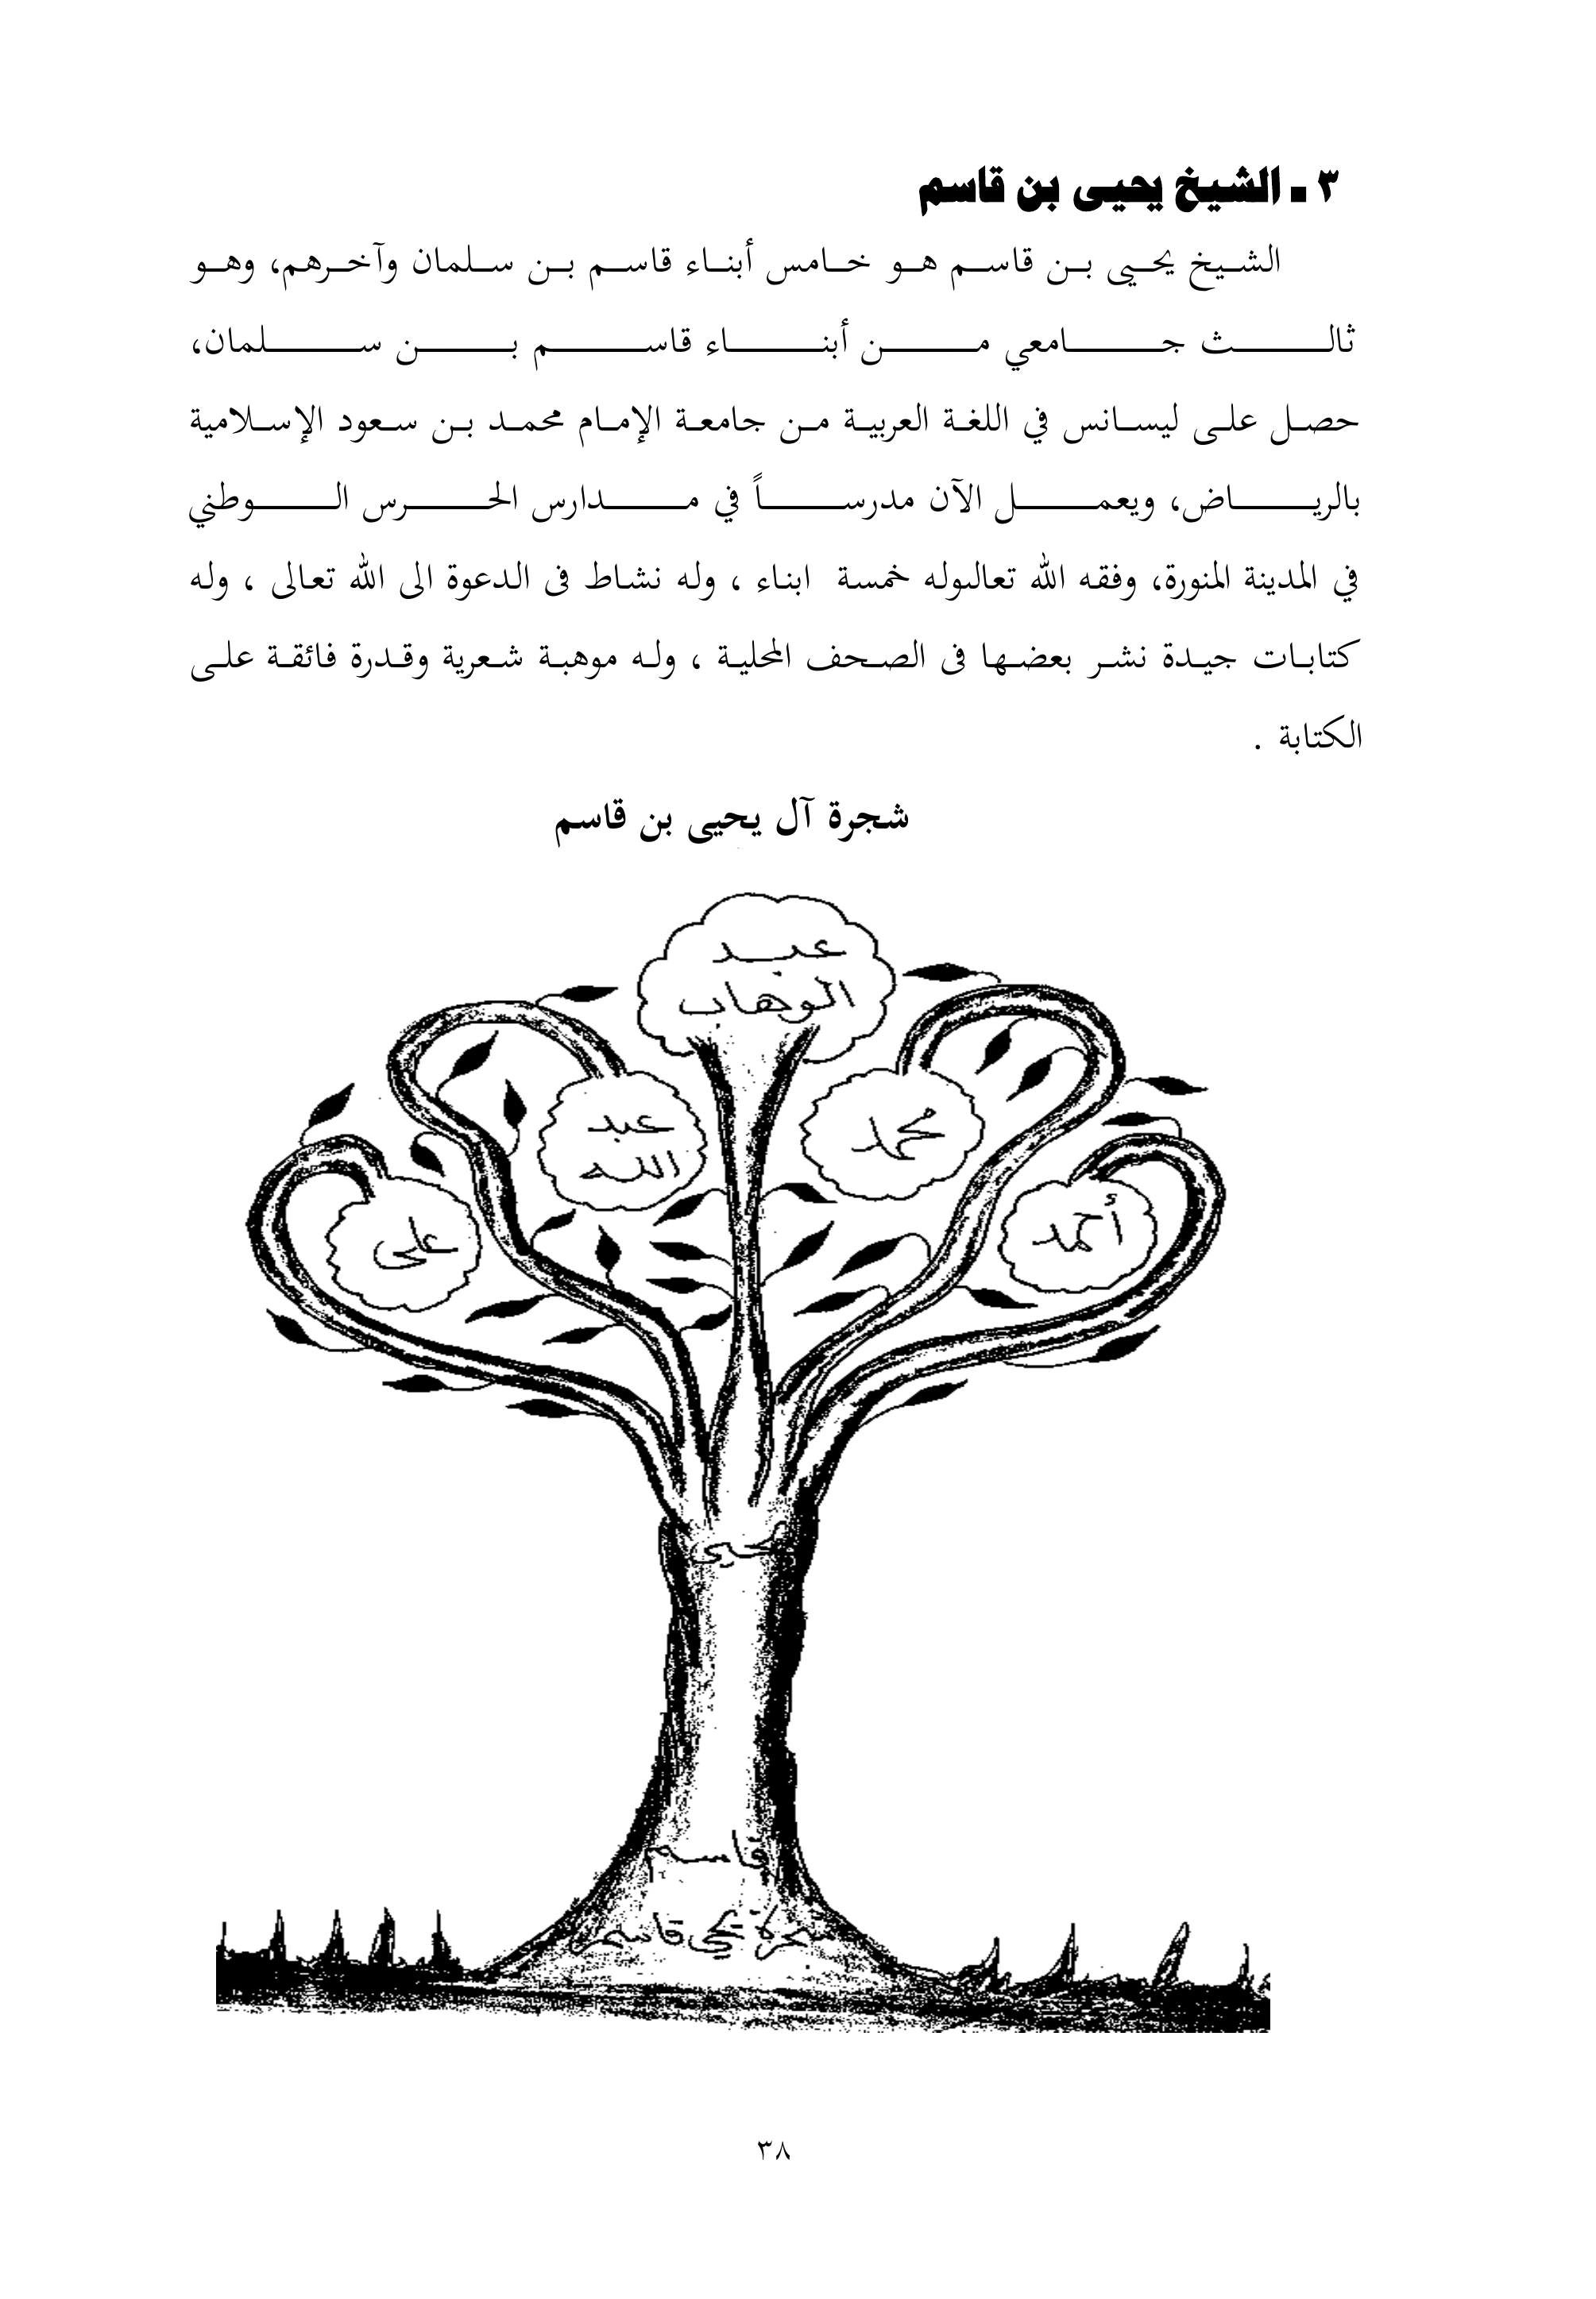 ٣ ـ الشيخ يحيى بن قاسم
الشيخ يحيى بن قاسم هو خامس أبناء قاسم بن سلمان وآخرهم، وهو
ثالث جامعي من أبناء قاسم بن سلمان،
حصل على ليسانس في اللغة العربية من جامعة الإمام محمد بن سعود الإسلامية
بالرياض، ويعمل الآن مدرساً في مدارس الحرس الوطني
في المدينة المنورة، وفقه الله تعالىوله خمسة ابناء ، وله نشاط فى الدعوة الى الله تعالى ، وله
كتابات جيدة نشر بعضها فى الصحف المحلية ، وله موهبة شعرية وقدرة فائقة على
الكتابة .
شجرة آل يحيى بن قاسم
عبد
الوهاب
محمد
عبد
الله
أحمد
على
يحيى
قاسم
شجرة يحيى قاسم
٣٨